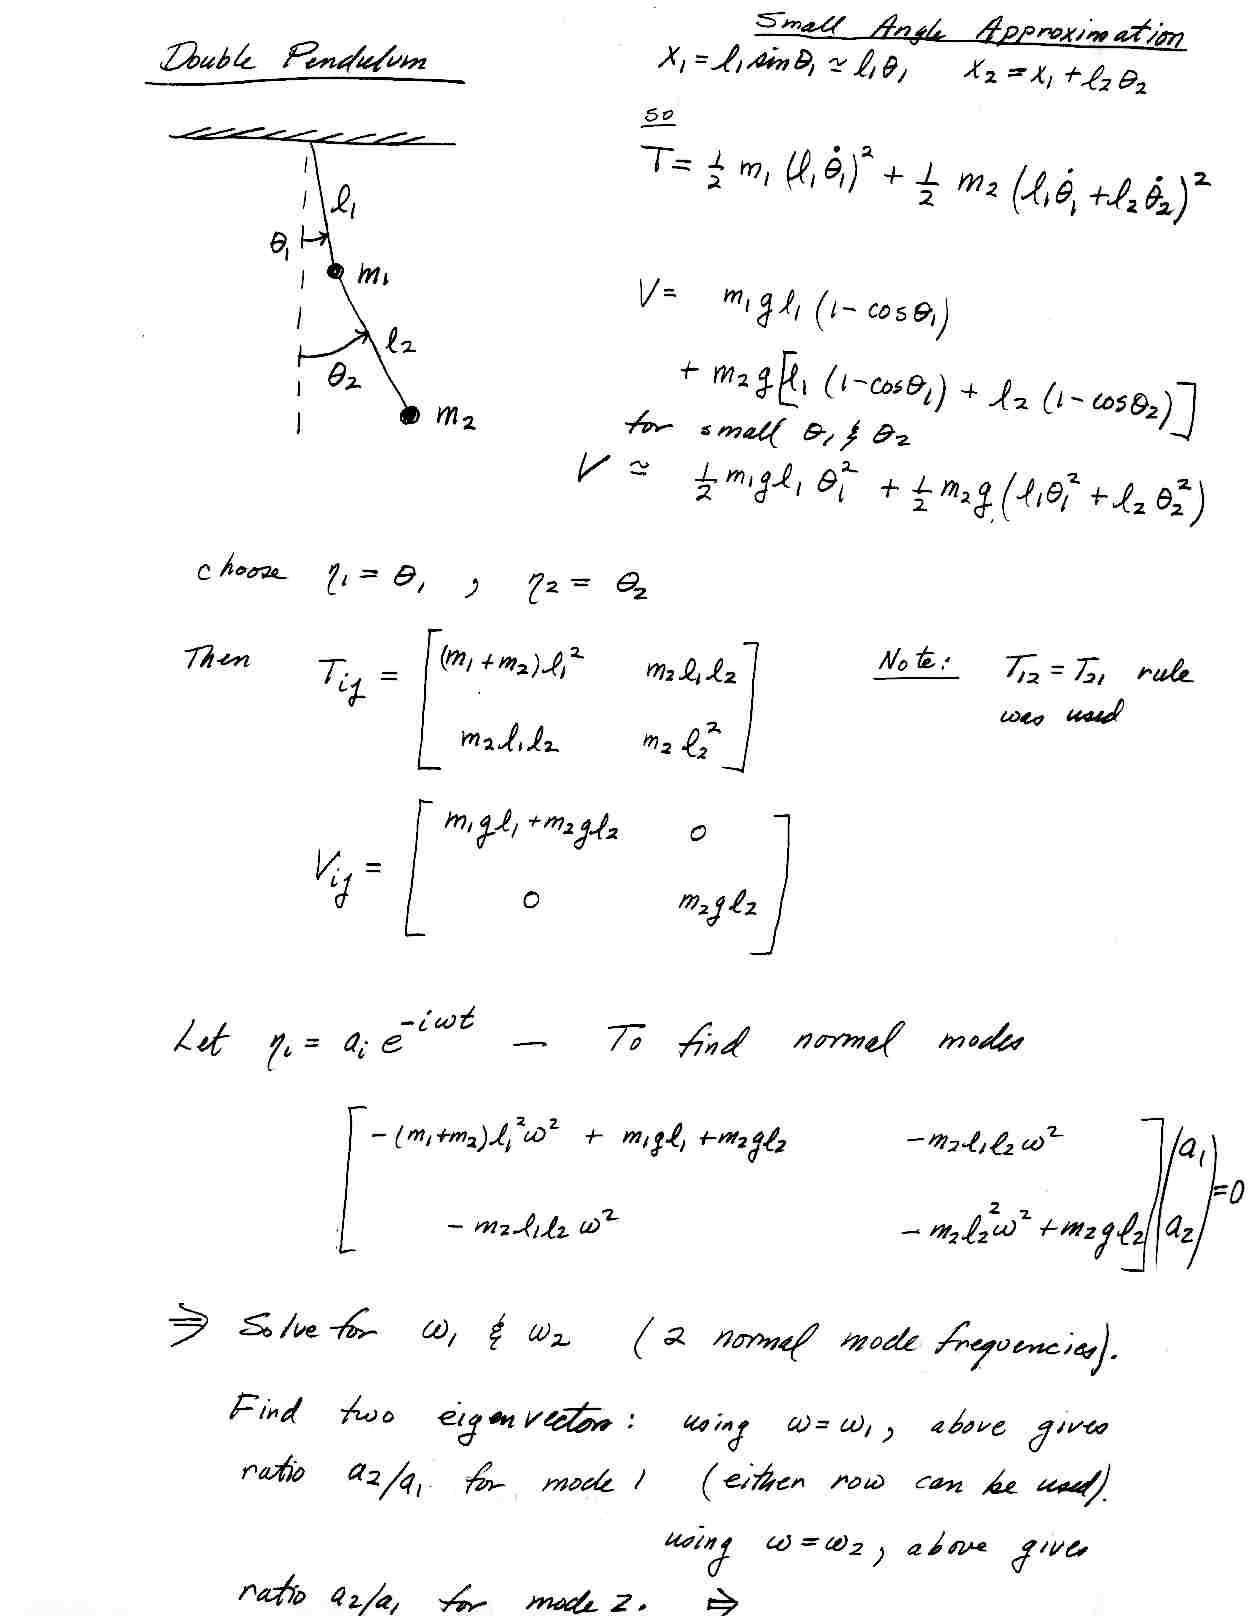 Double Pendulum
Small Angle Approximation
x₁ = l₁ sinθ₁ ≃ l₁θ₁   x₂ = x₁ + l₂θ₂
so
T = ½ m₁ (l₁θ̇₁)² + ½ m₂ (l₁θ̇₁ + l₂θ̇₂)²
l₁
θ₁
m₁
l₂
θ₂
m₂
V = m₁gl₁ (1 - cosθ₁)
+ m₂g[l₁ (1-cosθ₁) + l₂ (1-cosθ₂)]
for small θ₁ & θ₂
V ≃ ½ m₁gl₁ θ₁² + ½ m₂g (l₁θ₁² + l₂θ₂²)
choose η₁ = θ₁ , η₂ = θ₂
Then Tij = [(m₁+m₂)l₁²   m₂l₁l₂
m₂l₁l₂   m₂l₂²]
Note: T₁₂ = T₂₁ rule
was used
Vij = [m₁gl₁ + m₂gl₂   0
0   m₂gl₂]
Let ηᵢ = aᵢ e^(-iωt) — To find normal modes
[-(m₁+m₂)l₁²ω² + m₁gl₁ + m₂gl₂   -m₂l₁l₂ω²] (a₁
-m₂l₁l₂ω²   -m₂l₂²ω² + m₂gl₂] a₂) = 0
⇒ Solve for ω₁ & ω₂ (2 normal mode frequencies).
Find two eigenvectors: using ω = ω₁, above gives
ratio a₂/a₁ for mode 1 (either row can be used).
using ω = ω₂, above gives
ratio a₂/a₁ for mode 2. ⇒